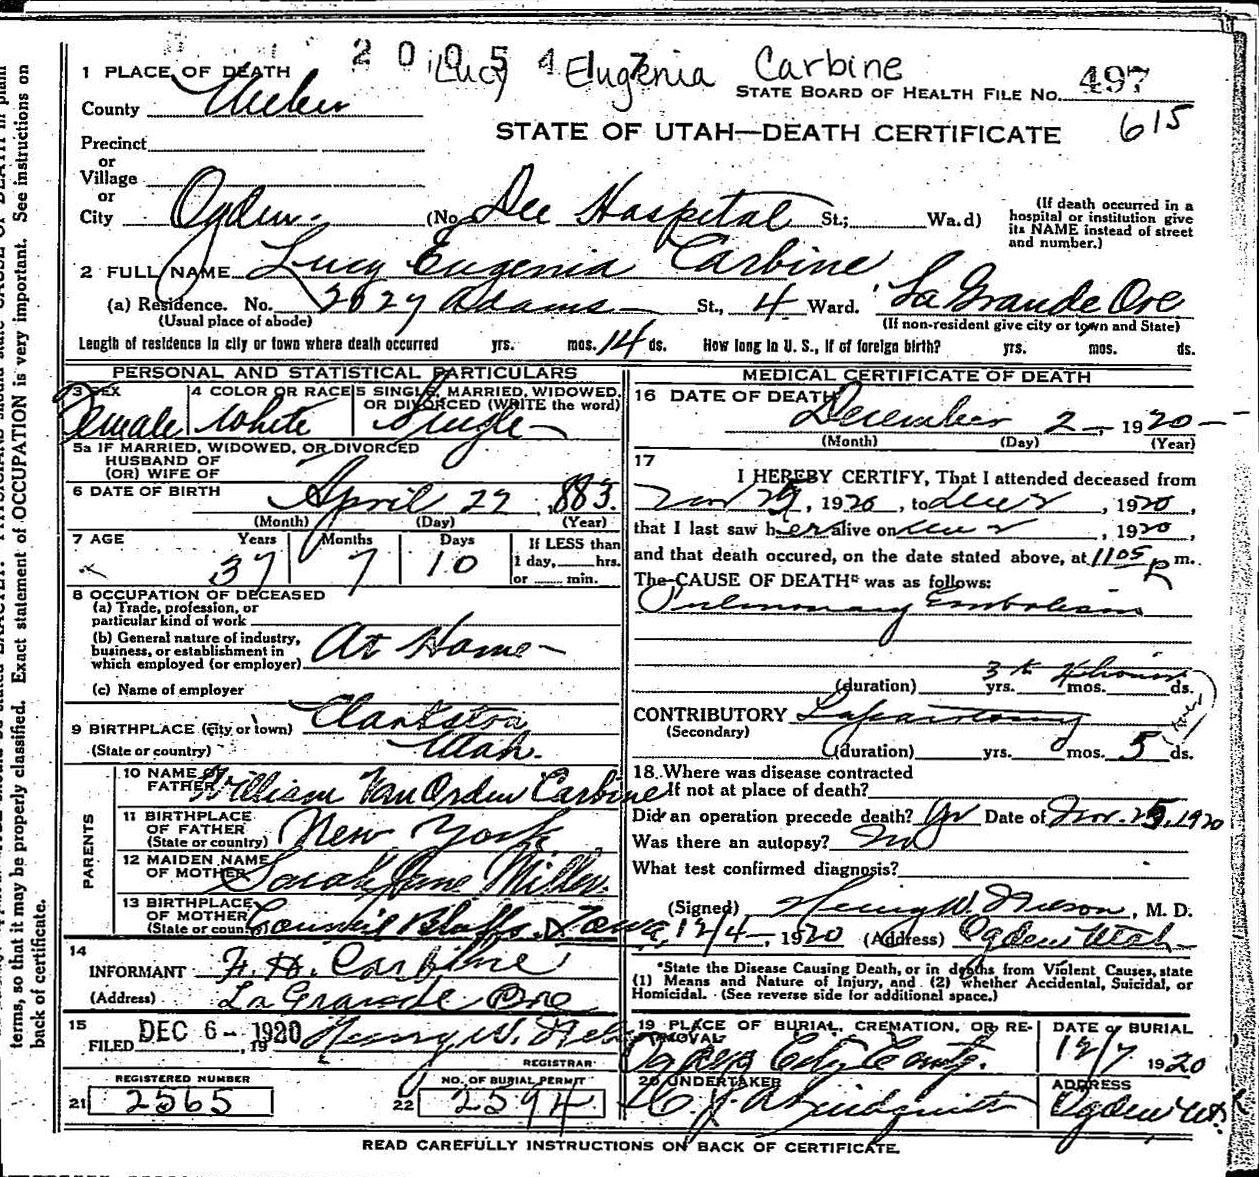 2 0 0 5 4 Lucy Eugenia Carbine
1 PLACE OF DEATH
STATE BOARD OF HEALTH FILE NO. 497
County Weber
615
STATE OF UTAH—DEATH CERTIFICATE
Precinct
or
Village
or
City Ogden (No. Dee Hospital St.; Wa.d)
(If death occurred in a hospital or institution give its NAME instead of street and number.)
2 FULL NAME Lucy Eugenia Carbine
(a) Residence. No. 2027 Adams St., 4 Ward. La Grande Ore
(Usual place of abode) (If non-resident give city or town and State)
Length of residence in city or town where death occurred yrs. mos. 14 ds. How long in U. S., if of foreign birth? yrs. mos. ds.
PERSONAL AND STATISTICAL PARTICULARS
3 SEX Female
4 COLOR OR RACE White
5 SINGLE, MARRIED, WIDOWED, OR DIVORCED (WRITE the word) Single
5a IF MARRIED, WIDOWED, OR DIVORCED
HUSBAND OF
(OR) WIFE OF
6 DATE OF BIRTH April 22, 1883.
(Month) (Day) (Year)
7 AGE Years Months Days If LESS than
37 7 10 1 day, hrs.
or min.
8 OCCUPATION OF DECEASED
(a) Trade, profession, or
particular kind of work
(b) General nature of industry,
business, or establishment in
which employed (or employer) At Home
(c) Name of employer
9 BIRTHPLACE (City or town) Clarkston
(State or country) Utah.
PARENTS
10 NAME OF
FATHER William Van Orden Carbine
11 BIRTHPLACE
OF FATHER
(State or country) New York
12 MAIDEN NAME
OF MOTHER Sarah Jane Miller
13 BIRTHPLACE
OF MOTHER
(State or country) Council Bluffs, Iowa
14
INFORMANT F. H. Carbine
(Address) La Grande Ore
15
FILED DEC 6 - 1920, 19 Henry W. Nelson
REGISTRAR
REGISTERED NUMBER
21 2565
NO. OF BURIAL PERMIT
22 2594
MEDICAL CERTIFICATE OF DEATH
16 DATE OF DEATH
December 2, 1920
(Month) (Day) (Year)
17
I HEREBY CERTIFY, That I attended deceased from
Nov 29, 1920, to Dec 2, 1920,
that I last saw h er alive on Dec 2, 1920,
and that death occured, on the date stated above, at 11 05 P m.
The CAUSE OF DEATH* was as follows:
Pulmonary Embolism
(duration) yrs. mos. ds.
CONTRIBUTORY Laparotomy
(Secondary)
(duration) yrs. mos. 5 ds.
18. Where was disease contracted
If not at place of death?
Did an operation precede death? Yes Date of Nov. 25, 1920
Was there an autopsy? No
What test confirmed diagnosis?
(Signed) Henry W. Nelson, M. D.
12/4, 1920 (Address) Ogden Utah
*State the Disease Causing Death, or in deaths from Violent Causes, state
(1) Means and Nature of Injury, and (2) whether Accidental, Suicidal, or
Homicidal. (See reverse side for additional space.)
19 PLACE OF BURIAL, CREMATION, OR RE-
MOVAL
Ogden City Cemty.
DATE of BURIAL
12/7 1920
20 UNDERTAKER
Lindquist
ADDRESS
Ogden Ut.
READ CAREFULLY INSTRUCTIONS ON BACK OF CERTIFICATE.
terms, so that it may be properly classified. Exact statement of OCCUPATION is very important. See instructions on
back of certificate.